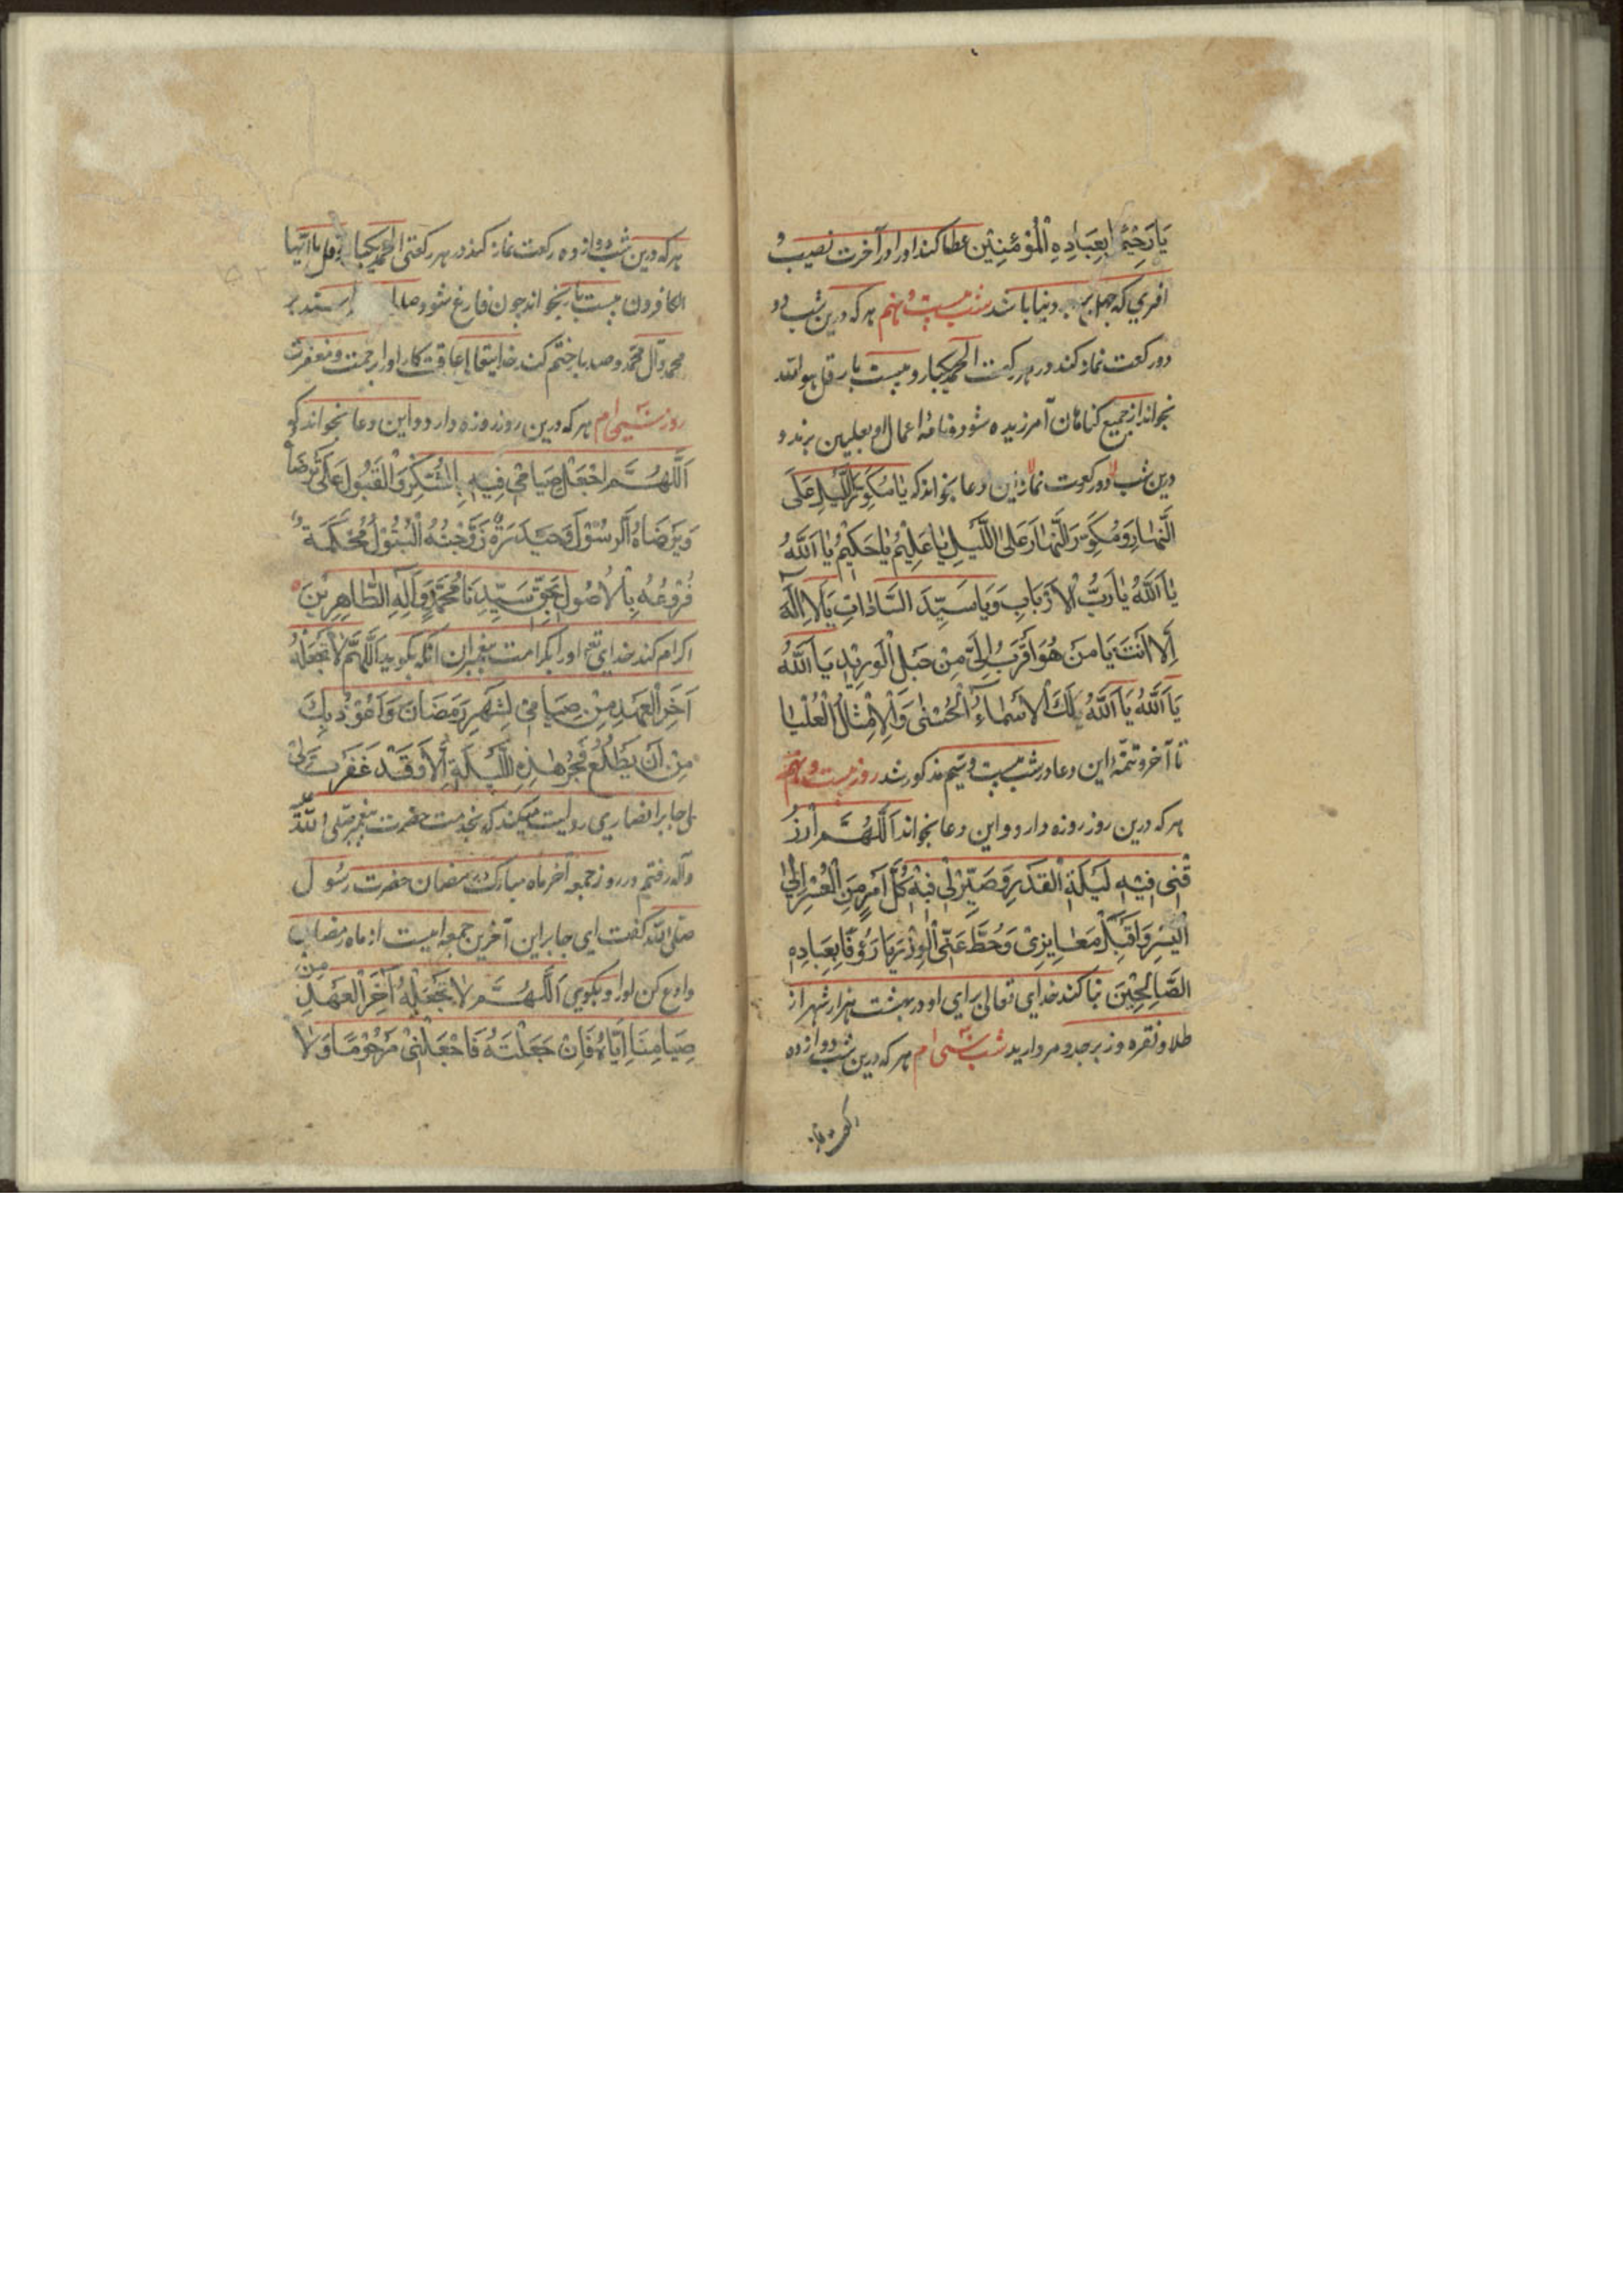 یَا رَحِیْمًا بِعِبَادِهِ الْمُؤْمِنِیْنَ عطا کند او را در آخرت نصیب و
افری که چهل بر دنیا باشد شب بیست و نهم هر که درین شب دو
دو رکعت نماز کند در هر رکعت الحمد یکبار و بیست بار قل هو الله
بخواند از جمیع گناهان آمرزیده شود و نامهٔ اعمال او بعلیین برند و
درین شب دو رکعت نماز این دعا بخواند که یَا مُکَوِّرَ اللَّیْلِ عَلَی
النَّهَارِ وَ مُکَوِّرَ النَّهَارِ عَلَی اللَّیْلِ یَا عَلِیْمُ یَا حَکِیْمُ یَا اَللّٰهُ
یَا اَللّٰهُ یَا رَبَّ الْاَرْبَابِ وَ یَا سَیِّدَ السَّادَاتِ یَا لَا اِلٰهَ
اِلَّا اَنْتَ یَا مَنْ هُوَ اَقْرَبُ اِلَیَّ مِنْ حَبْلِ الْوَرِیْدِ یَا اَللّٰهُ
یَا اَللّٰهُ یَا اَللّٰهُ لَكَ الْاَسْمَاءُ الْحُسْنٰی وَالْاَمْثَالُ الْعُلْیَا
تا آخر و تتمهٔ این دعا در شب بیست و سیم مذکور شد روز بیست و نهم
هر که درین روز روزه دارد و این دعا بخواند اَللّٰهُمَّ ارْزُ
قْنِی فِیْهِ لَیْلَةَ الْقَدْرِ وَ صَیِّرْ لِی فِیْهِ کُلَّ اَمْرٍ مِنَ الْعُسْرِ اِلَی
الْیُسْرِ وَ اقْبَلْ مَعَایِزِیْ وَ حُطَّ عَنِّی الْوِزْرَ یَا رَؤُفًا بِعِبَادِهِ
الصَّالِحِیْنَ بنا کند خدای تعالی برای او در بهشت هزار شهر از
طلا و نقره و زبرجد و مروارید شب سی ام هر که درین شب دوازده
رکعت نماز
هر که درین شب دوازده رکعت نماز کند در هر رکعتی الحمد یکبار و قل یا ایها
الکافرون بیست بار بخواند چون فارغ شود صلوات بر
محمد و آل محمد و صد بار ختم کند خدایتعالی عاقبت کار او را برحمت و مغفرت
روز سی ام هر که درین روز روزه دارد و این دعا بخواند که
اَللّٰهُمَّ اجْعَلْ صِیَامِیْ فِیْهِ بِالشُّکْرِ وَالْقَبُوْلِ عَلَی تَرْضَاهُ
وَ یَرْضَاهُ الرَّسُوْلُ وَ حَیْدَرَةٌ زَوْجَتُهُ الْبَتُوْلُ مُحْکَمَةً
فُرُوْعُهُ بِالْاُصُوْلِ بِحَقِّ سَیِّدِنَا مُحَمَّدٍ وَ آلِهِ الطَّاهِرِیْنَ
اکرام کند خدای تع او را بکرامت پیغمبران آنکه بگوید اَللّٰهُمَّ لَا تَجْعَلْهُ
آخِرَ الْعَهْدِ مِنْ صِیَامِیْ لِشَهْرِ رَمَضَانَ وَ اَعُوْذُ بِكَ
مِنْ اَنْ یَطْلُعَ فَجْرُ هٰذِهِ اللَّیْلَةِ اِلَّا وَ قَدْ غَفَرْتَ لِیْ
جابر انصاری روایت میکند که بخدمت حضرت پیغمبر صلی الله علیه
و آله رفتم در روز جمعه آخر ماه مبارک رمضان حضرت رسول
صلی الله گفت ای جابر این آخرین جمعه ایست از ماه رمضان
وداع کن او را و بگوی اَللّٰهُمَّ لَا تَجْعَلْهُ آخِرَ الْعَهْدِ مِنْ
صِیَامِنَا اِیَّاهُ فَاِنْ جَعَلْتَهُ فَاجْعَلْنِیْ مَرْحُوْمًا وَ لَا